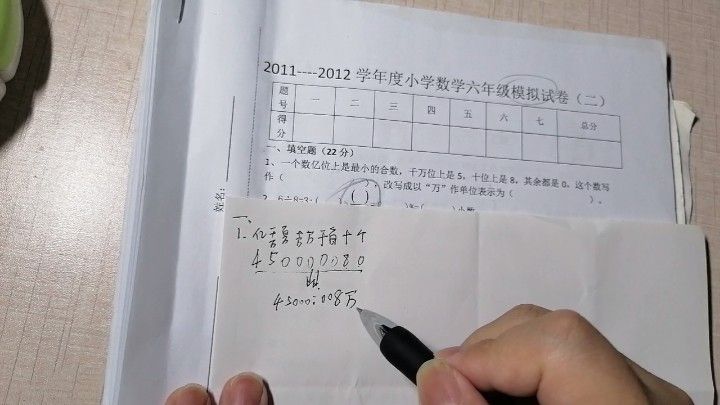 2011----2012 学年度小学数学六年级模拟试卷（二）
题号 一 二 三 四 五 六 七 总分
得分
一、填空题（22 分）
1、一个数亿位上是最小的合数，千万位上是 5，十位上是 8，其余都是 0，这个数写
作（ ），改写成以“万”作单位表示为（ ）。
姓名：
一、
1. 亿
千 十 个
450000080
45000.008万